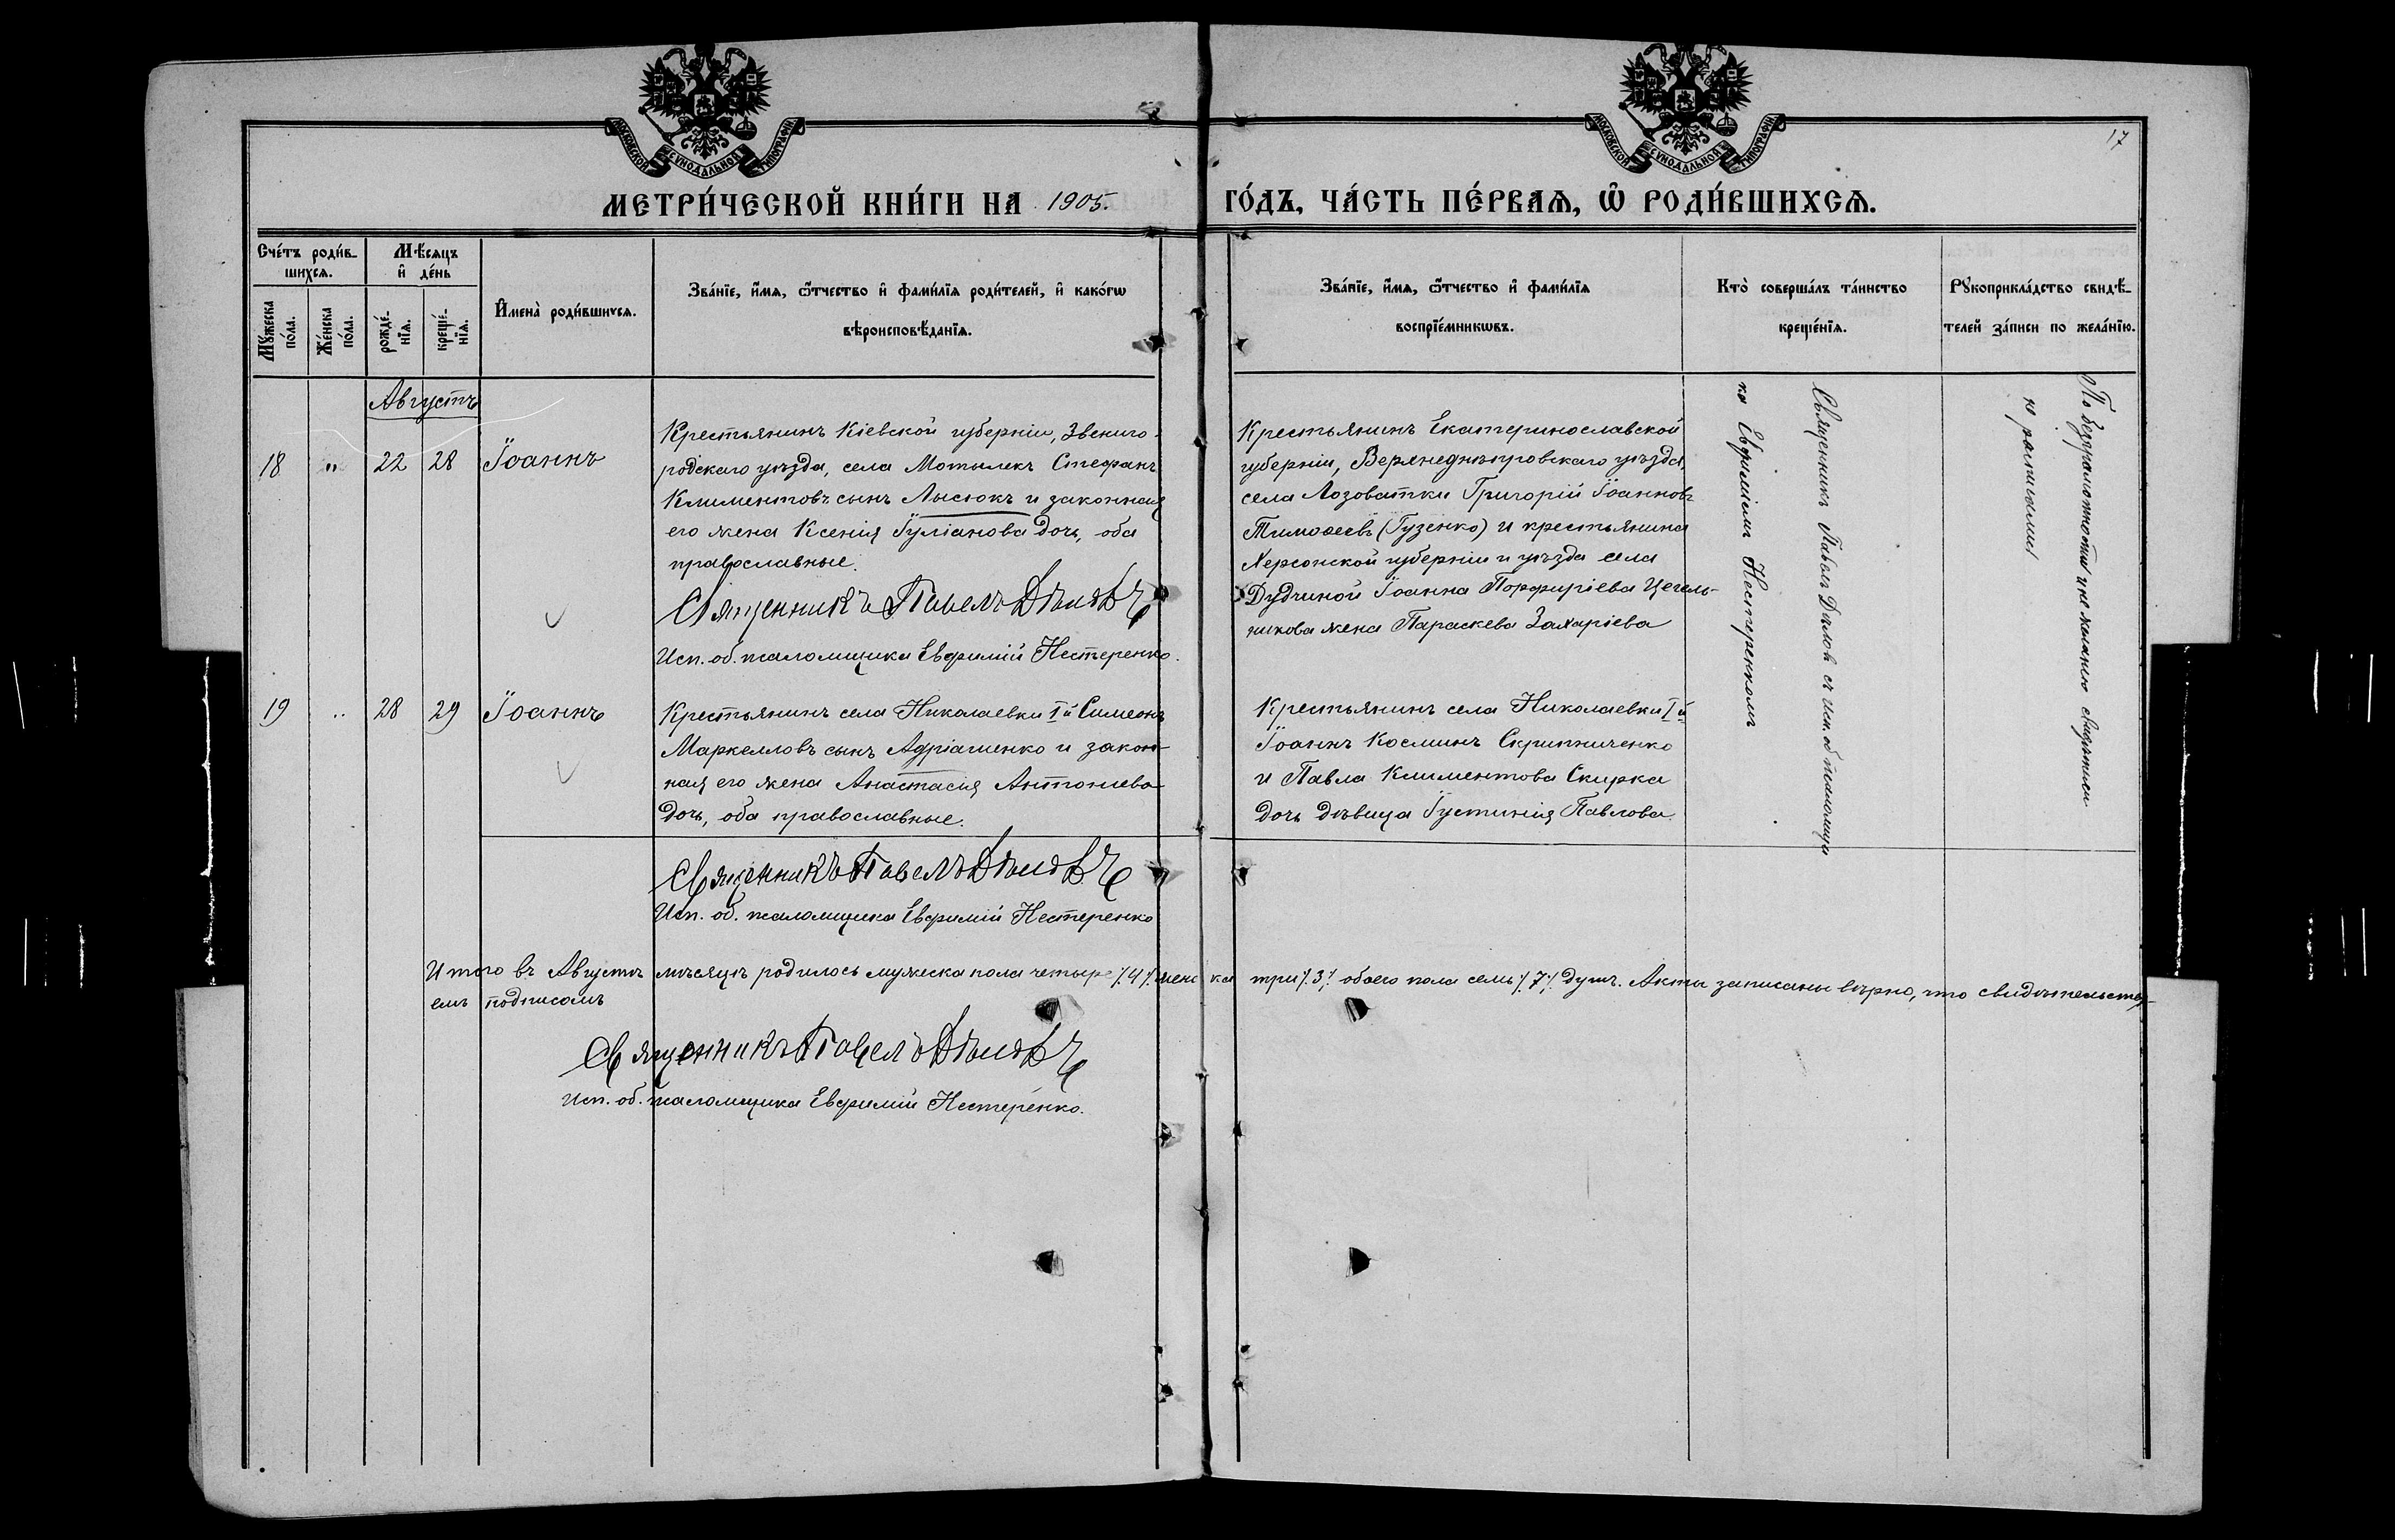 МОСКОВСКОЙ СѴНОДАЛЬНОЙ ТИПОГРАФІИ
МОСКОВСКОЙ СѴНОДАЛЬНОЙ ТИПОГРАФІИ
17
МЕТРИ́ЧЕСКОЙ КНИ́ГИ НА 1905.
ГО́ДЪ, ЧА́СТЬ ПЕ́РВАѦ, Ѡ РОДИ́ВШИХСѦ.
Сче́тъ роди́в-
шихсѧ.
Мѣ́сѧцъ
и де́нь
Мꙋ́жеска
по́ла.
Же́нска
по́ла.
рожде́-
нїѧ.
креще́-
нїѧ.
Имена̀ роди́вшихсѧ.
Зва́нїе, и́мѧ, ѻ́тчество и фами́лїѧ роди́телей, и како́гѡ
вѣроисповѣ́данїѧ.
Зва́нїе, и́мѧ, ѻ́тчество и фами́лїѧ
воспрїе́мникѡвъ.
Кто̀ соверша́лъ та́инство
креще́нїѧ.
Рꙋкоприкла́дство свидѣ́-
телей за́писи по жела́нїю.
Августъ
18 " 22 28 Іоаннъ
Крестьянинъ Кіевской губерніи, Звениго-
родскаго уѣзда, села Мотылекъ Стефанъ
Климентовъ сынъ Лысюкъ и законная
его жена Ксенія Іуліанова дочь, оба
православные.
Священникъ Павелъ Дѣловъ
Исп. об. псаломщика Евфимій Нестеренко.
Крестьянинъ Екатеринославской
губерніи, Верхнеднѣпровскаго уѣзда,
села Лозоватки Григорій Іоанновъ
Тимоѳеевъ (Гузенко) и крестьянина
Херсонской губерніи и уѣзда села
Дудчиной Іоанна Порфиріева Цегель-
никова жена Параскева Захаріева
Священникъ Павелъ Дѣловъ съ исп. об. псаломщи
ка Евфиміемъ Нестеренкомъ
По безграмотности и не желанію свидѣтели
не расписались
19 " 28 29 Іоаннъ
Крестьянинъ села Николаевки Iй Симеонъ
Маркелловъ сынъ Адріашенко и закон-
ная его жена Анастасія Антоніева
дочь, оба православные.
Священникъ Павелъ Дѣловъ
Исп. об. псаломщика Евфимій Нестеренко
Крестьянинъ села Николаевки Iй
Іоаннъ Косминъ Скрипниченко
и Павла Климентова Скирка
дочь дѣвица Іустинія Павлова.
Итого въ Августѣ мѣсяцѣ родилось мужеска пола четыре ⁒4⁒ женска три ⁒3⁒ обоего пола семь ⁒7⁒ душъ. Акты записаны вѣрно, что свидѣтельству-
емъ подписомъ
Священникъ Павелъ Дѣловъ
Исп. об. псаломщика Евфимій Нестеренко.